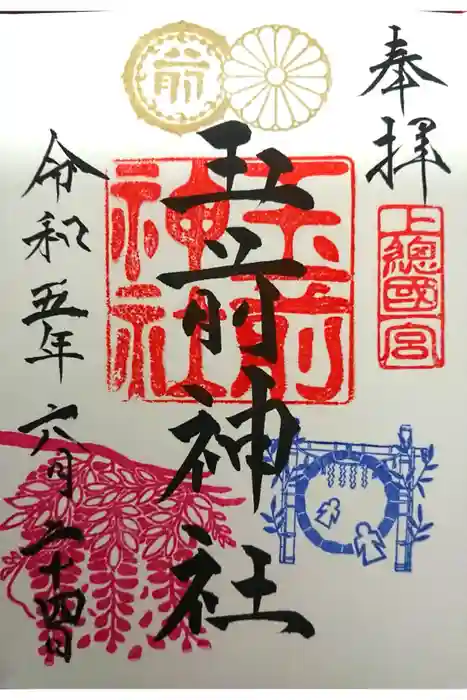 奉拝
上總國一宮
玉前神社
玉前神社
前
令和五年六月二十四日